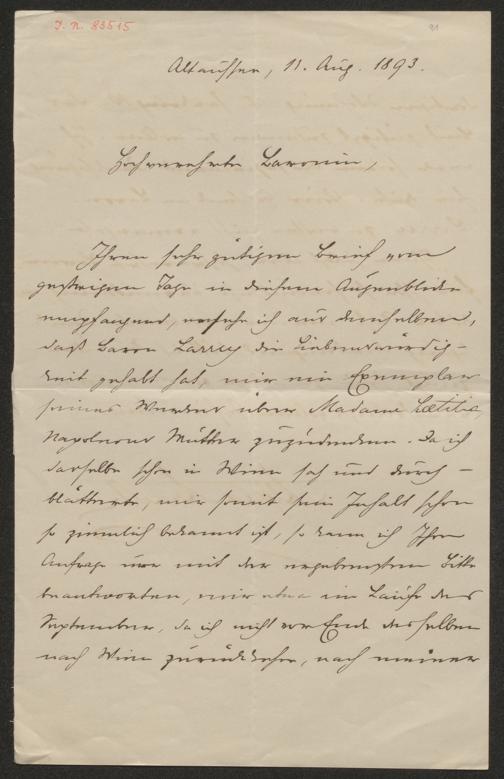 J. N. 83515
91
Altaussee, 11. Aug. 1893.
Hochverehrte Baronin,
Ihren sehr gütigen Brief vom
gestrigen Tage in diesem Augenblicke
empfangend, ersehe ich aus demselben,
daß Baron Larrey die Liebenswürdig-
keit gehabt hat, mir ein Exemplar
seines Werkes über Madame Lætitia,
Napoleons Mutter zuzudenken. Da ich
dasselbe schon in Wien sah und durch-
blätterte, mir somit sein Inhalt schon
so ziemlich bekannt ist, so kann ich Ihre
Anfrage nur mit der ergebensten Bitte
beantworten, mir etwa im Laufe des
September, da ich nicht vor Ende desselben
nach Wien zurückkehre, nach meiner